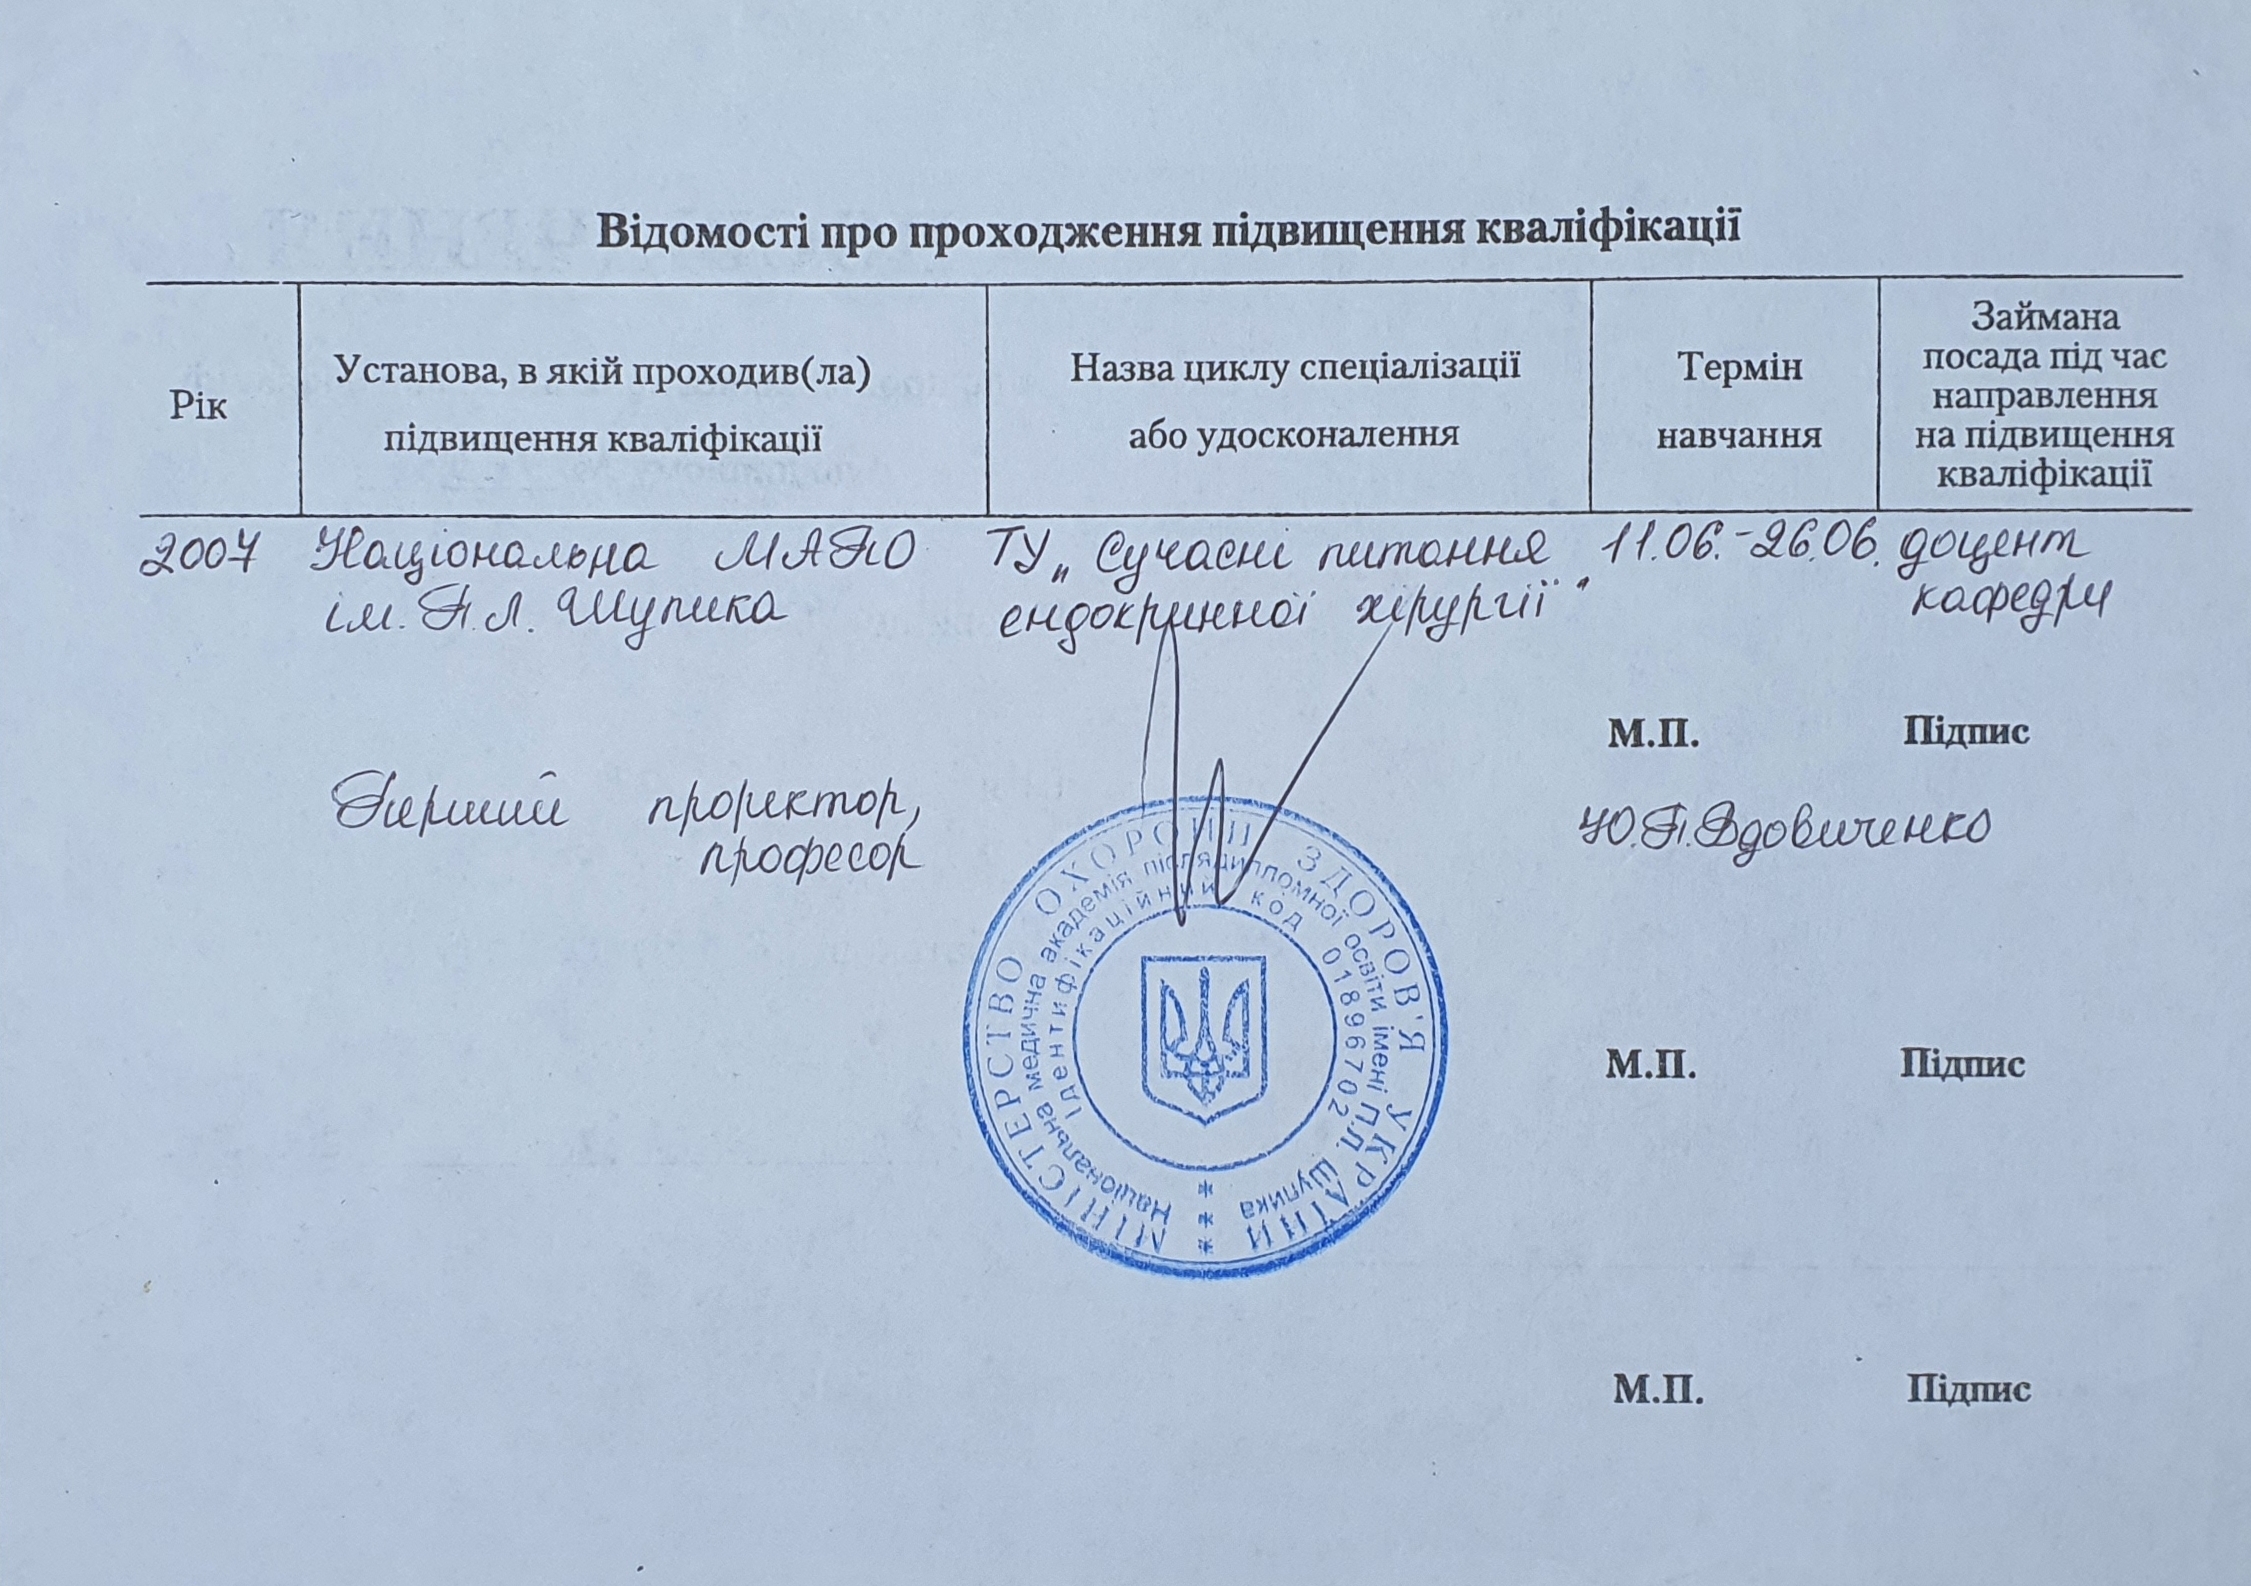 Відомості про проходження підвищення кваліфікації
Рік
Установа, в якій проходив(ла)
підвищення кваліфікації
Назва циклу спеціалізації
або удосконалення
Термін
навчання
Займана
посада під час
направлення
на підвищення
кваліфікації
2007 Національна МАПО ТУ „Сучасні питання 11.06.-26.06. доцент
ім. П.Л. Шупика ендокринної хірургії" кафедри
М.П. Підпис
Перший проректор, Ю.П. Вдовиченко
професор
МІНІСТЕРСТВО ОХОРОНИ ЗДОРОВ'Я УКРАЇНИ
Національна медична академія післядипломної освіти імені П.Л. Шупика
Ідентифікаційний код 01896702
* * *
М.П. Підпис
М.П. Підпис